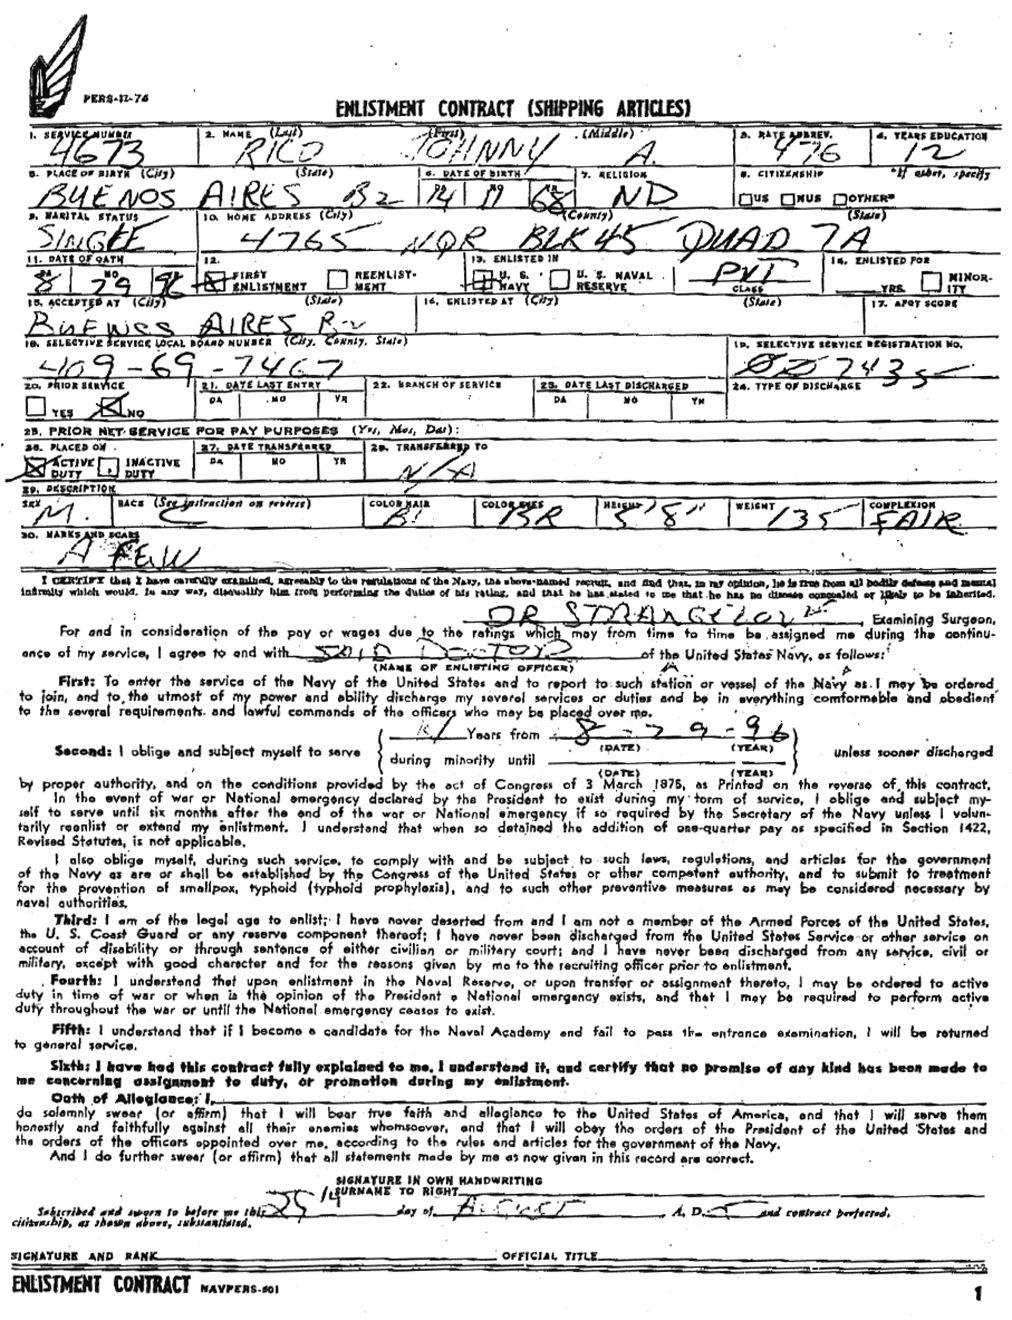 PERS-12-76
ENLISTMENT CONTRACT (SHIPPING ARTICLES)
1. SERVICE NUMBER 2. NAME (Last) (First) (Middle) 3. RATE ABBREV. 4. YEARS EDUCATION
4673 RICO JOHNNY A. 476 12
5. PLACE OF BIRTH (City) (State) 6. DATE OF BIRTH 7. RELIGION 8. CITIZENSHIP *If other, specify
BUENOS AIRES BZ 14 11 68 ND US NUS OTHER*
9. MARITAL STATUS 10. HOME ADDRESS (City) (County) (State)
SINGLE 4765 NQR BLK 45 QUAD 7A
11. DATE OF OATH 12. 13. ENLISTED IN 14. ENLISTED FOR
8 29 96 FIRST ENLISTMENT REENLISTMENT U. S. NAVY U. S. NAVAL RESERVE PVT CLASS YRS. MINORITY
15. ACCEPTED AT (City) (State) 16. ENLISTED AT (City) (State) 17. AFQT SCORE
BUENOS AIRES
18. SELECTIVE SERVICE LOCAL BOARD NUMBER (City, County, State) 19. SELECTIVE SERVICE REGISTRATION NO.
409-69-7467 7435
20. PRIOR SERVICE 21. DATE LAST ENTRY 22. BRANCH OF SERVICE 23. DATE LAST DISCHARGED 24. TYPE OF DISCHARGE
YES NO DA MO YR DA MO YR
25. PRIOR NET SERVICE FOR PAY PURPOSES (Yrs, Mos, Das):
26. PLACED ON 27. DATE TRANSFERRED 28. TRANSFERRED TO
ACTIVE DUTY INACTIVE DUTY DA MO YR N/A
29. DESCRIPTION
SEX RACE (See instruction on reverse) COLOR HAIR COLOR EYES HEIGHT WEIGHT COMPLEXION
M. C Bl BR 5'8" 135 FAIR
30. MARKS AND SCARS
A FEW
I CERTIFY that I have carefully examined, agreeably to the regulations of the Navy, the above-named recruit, and find that, in my opinion, he is free from all bodily defects and mental
infirmity which would, in any way, disqualify him from performing the duties of his rating, and that he has stated to me that he has no disease concealed or likely to be inherited.
DR STRANGELOVE, Examining Surgeon,
For and in consideration of the pay or wages due to the ratings which may from time to time be assigned me during the continu-
ance of my service, I agree to and with SAID DOCTOR of the United States Navy, as follows:
(NAME OF ENLISTING OFFICER)
First: To enter the service of the Navy of the United States and to report to such station or vessel of the Navy as I may be ordered
to join, and to the utmost of my power and ability discharge my several services or duties and be in everything comformable and obedient
to the several requirements and lawful commands of the officers who may be placed over me.
Years from 8-29-96
Second: I oblige and subject myself to serve (DATE) (YEAR) unless sooner discharged
during minority until
(DATE) (YEAR)
by proper authority, and on the conditions provided by the act of Congress of 3 March 1875, as Printed on the reverse of this contract.
In the event of war or National emergency declared by the President to exist during my term of service, I oblige and subject my-
self to serve until six months after the end of the war or National emergency if so required by the Secretary of the Navy unless I volun-
tarily reenlist or extend my enlistment. I understand that when so detained the addition of one-quarter pay as specified in Section 1422,
Revised Statutes, is not applicable.
I also oblige myself, during such service, to comply with and be subject to such laws, regulations, and articles for the government
of the Navy as are or shall be established by the Congress of the United States or other competent authority, and to submit to treatment
for the prevention of smallpox, typhoid (typhoid prophylaxis), and to such other preventive measures as may be considered necessary by
naval authorities.
Third: I am of the legal age to enlist; I have never deserted from and I am not a member of the Armed Forces of the United States,
the U. S. Coast Guard or any reserve component thereof; I have never been discharged from the United States Service or other service on
account of disability or through sentence of either civilian or military court; and I have never been discharged from any service, civil or
military, except with good character and for the reasons given by me to the recruiting officer prior to enlistment.
Fourth: I understand that upon enlistment in the Naval Reserve, or upon transfer or assignment thereto, I may be ordered to active
duty in time of war or when in the opinion of the President a National emergency exists, and that I may be required to perform active
duty throughout the war or until the National emergency ceases to exist.
Fifth: I understand that if I become a candidate for the Naval Academy and fail to pass the entrance examination, I will be returned
to general service.
Sixth: I have had this contract fully explained to me, I understand it, and certify that no promise of any kind has been made to
me concerning assignment to duty, or promotion during my enlistment.
Oath of Allegiance: I,
do solemnly swear (or affirm) that I will bear true faith and allegiance to the United States of America, and that I will serve them
honestly and faithfully against all their enemies whomsoever, and that I will obey the orders of the President of the United States and
the orders of the officers appointed over me, according to the rules and articles for the government of the Navy.
And I do further swear (or affirm) that all statements made by me as now given in this record are correct.
SIGNATURE IN OWN HANDWRITING
SURNAME TO RIGHT
Subscribed and sworn to before me this day of AUGUST A. D. and contract perfected,
citizenship, as shown above, substantiated.
SIGNATURE AND RANK OFFICIAL TITLE
ENLISTMENT CONTRACT NAVPERS-601 1